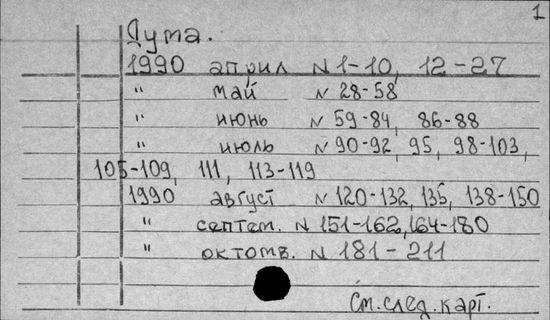 1
Дума.
1990 април N 1-10, 12-27
" май N 28-58
" июнь N 59-84, 86-88
" июль N 90-92, 95, 98-103,
105-109, 111, 113-119
1990 август N 120-132, 135, 138-150
" септем. N 151-162, 164-180
" октомв. N 181-211
См. след. карт.